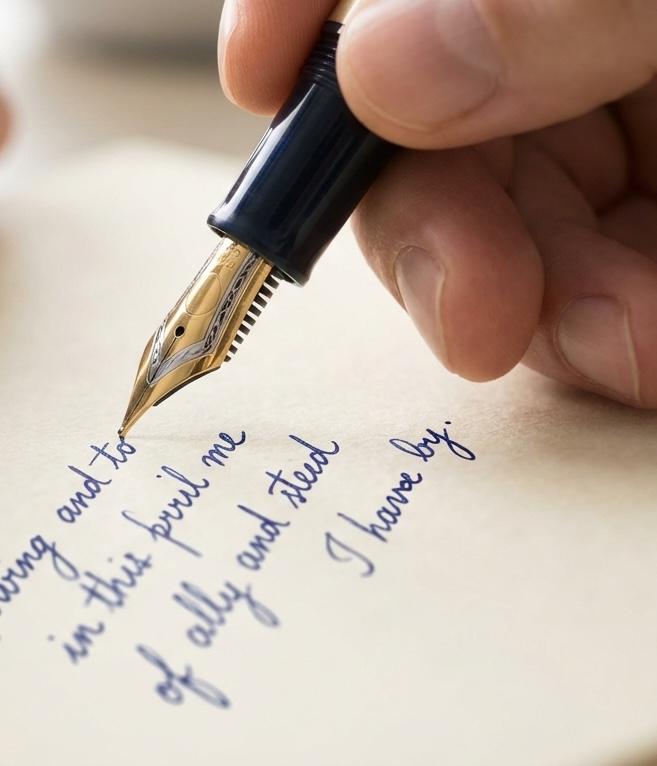 wing and to
in this pril me
of ally and steid
I have by.